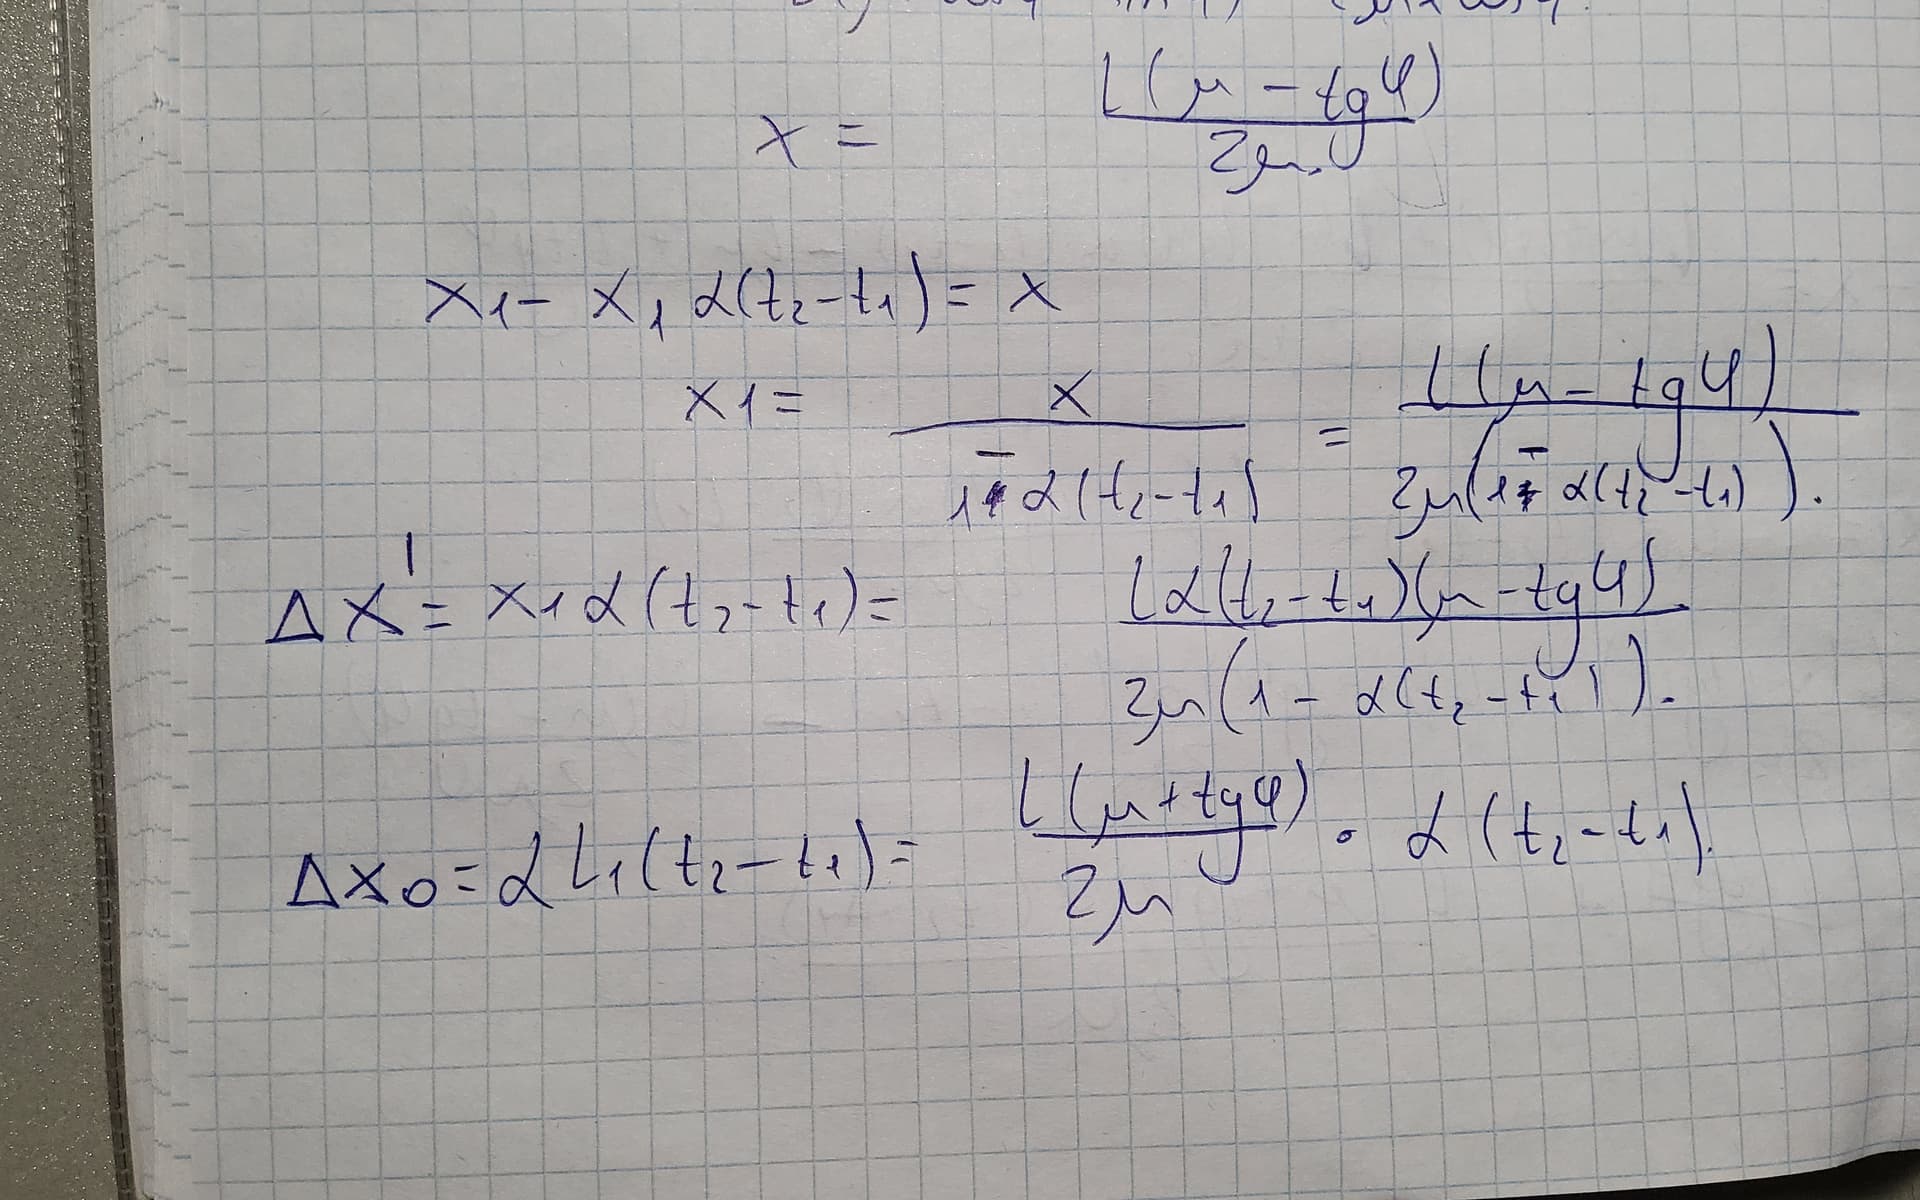 x = L(μ - tgφ) / 2μ.
x₁ - x₁ α(t₂-t₁) = x
x1 = x / (1 - α(t₂-t₁)) = L(μ - tgφ) / 2μ(1 - α(t₂-t₁)).
Δx' = x₁ α(t₂-t₁) = Lα(t₂-t₁)(μ - tgφ) / 2μ(1 - α(t₂-t₁)).
Δx₀ = αL₁(t₂-t₁) = L(μ+tgφ) / 2μ · α(t₂-t₁).